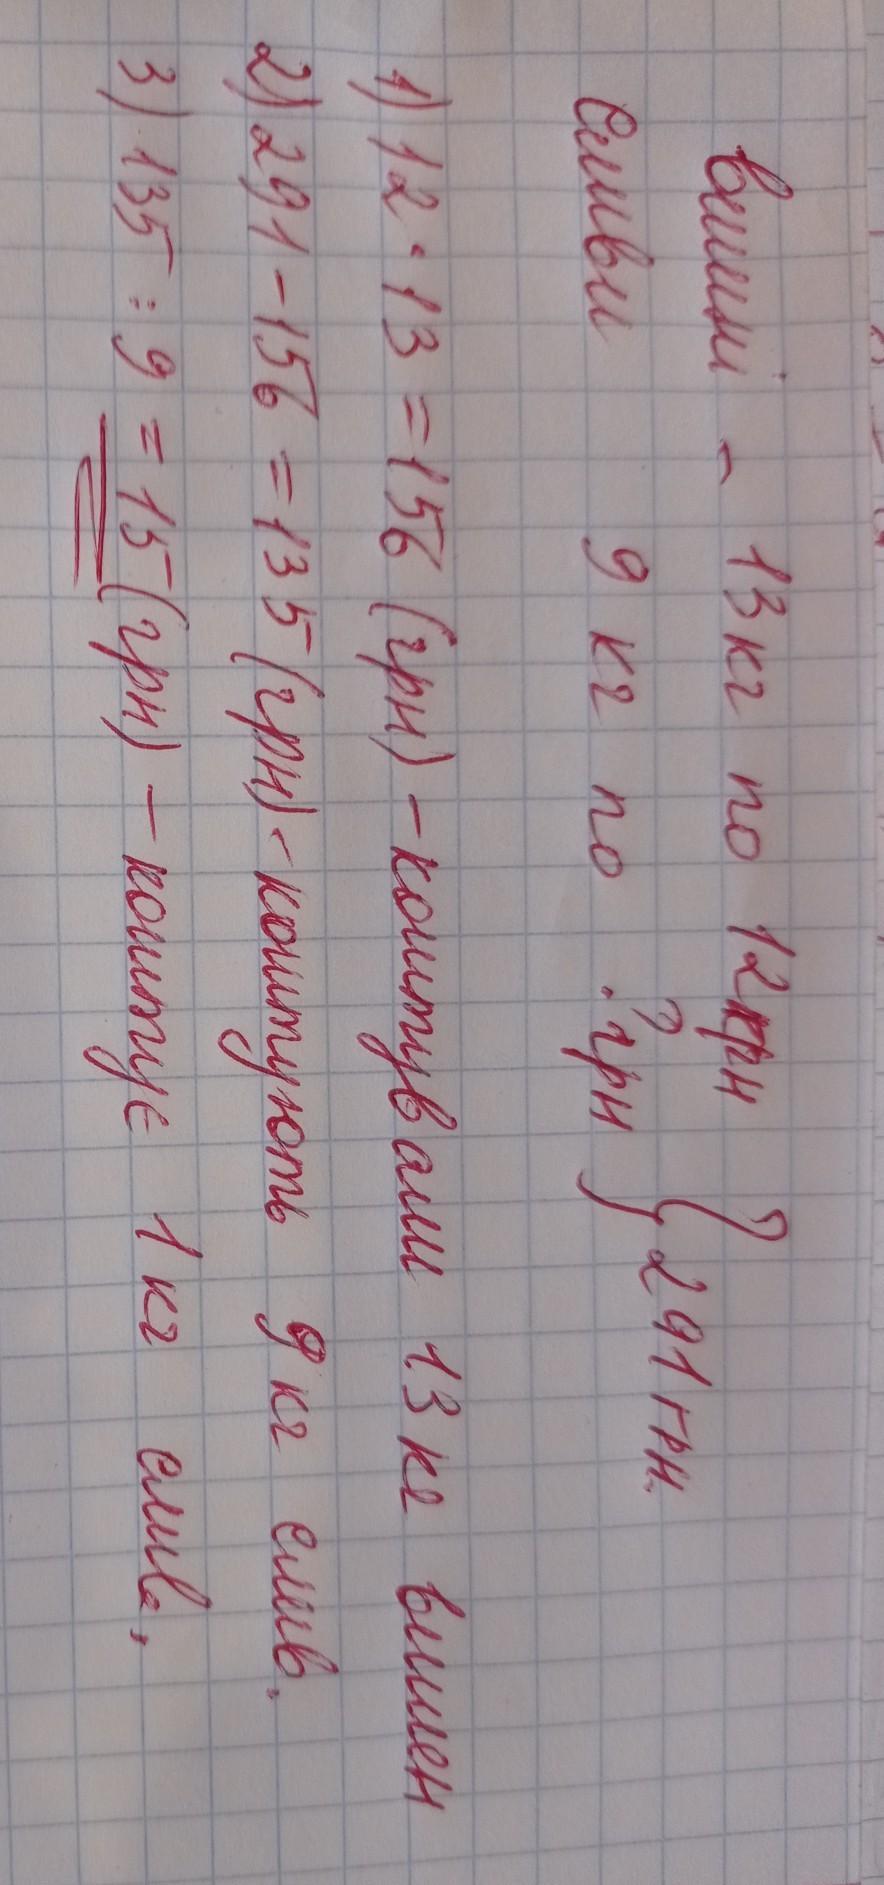 Вишні - 13 кг по 12 грн
Сливи 9 кг по ? грн } 291 грн.
1) 12 · 13 = 156 (грн) - коштували 13 кг вишен
2) 291 - 156 = 135 (грн) - коштують 9 кг слив.
3) 135 : 9 = 15 (грн) - коштує 1 кг слив.